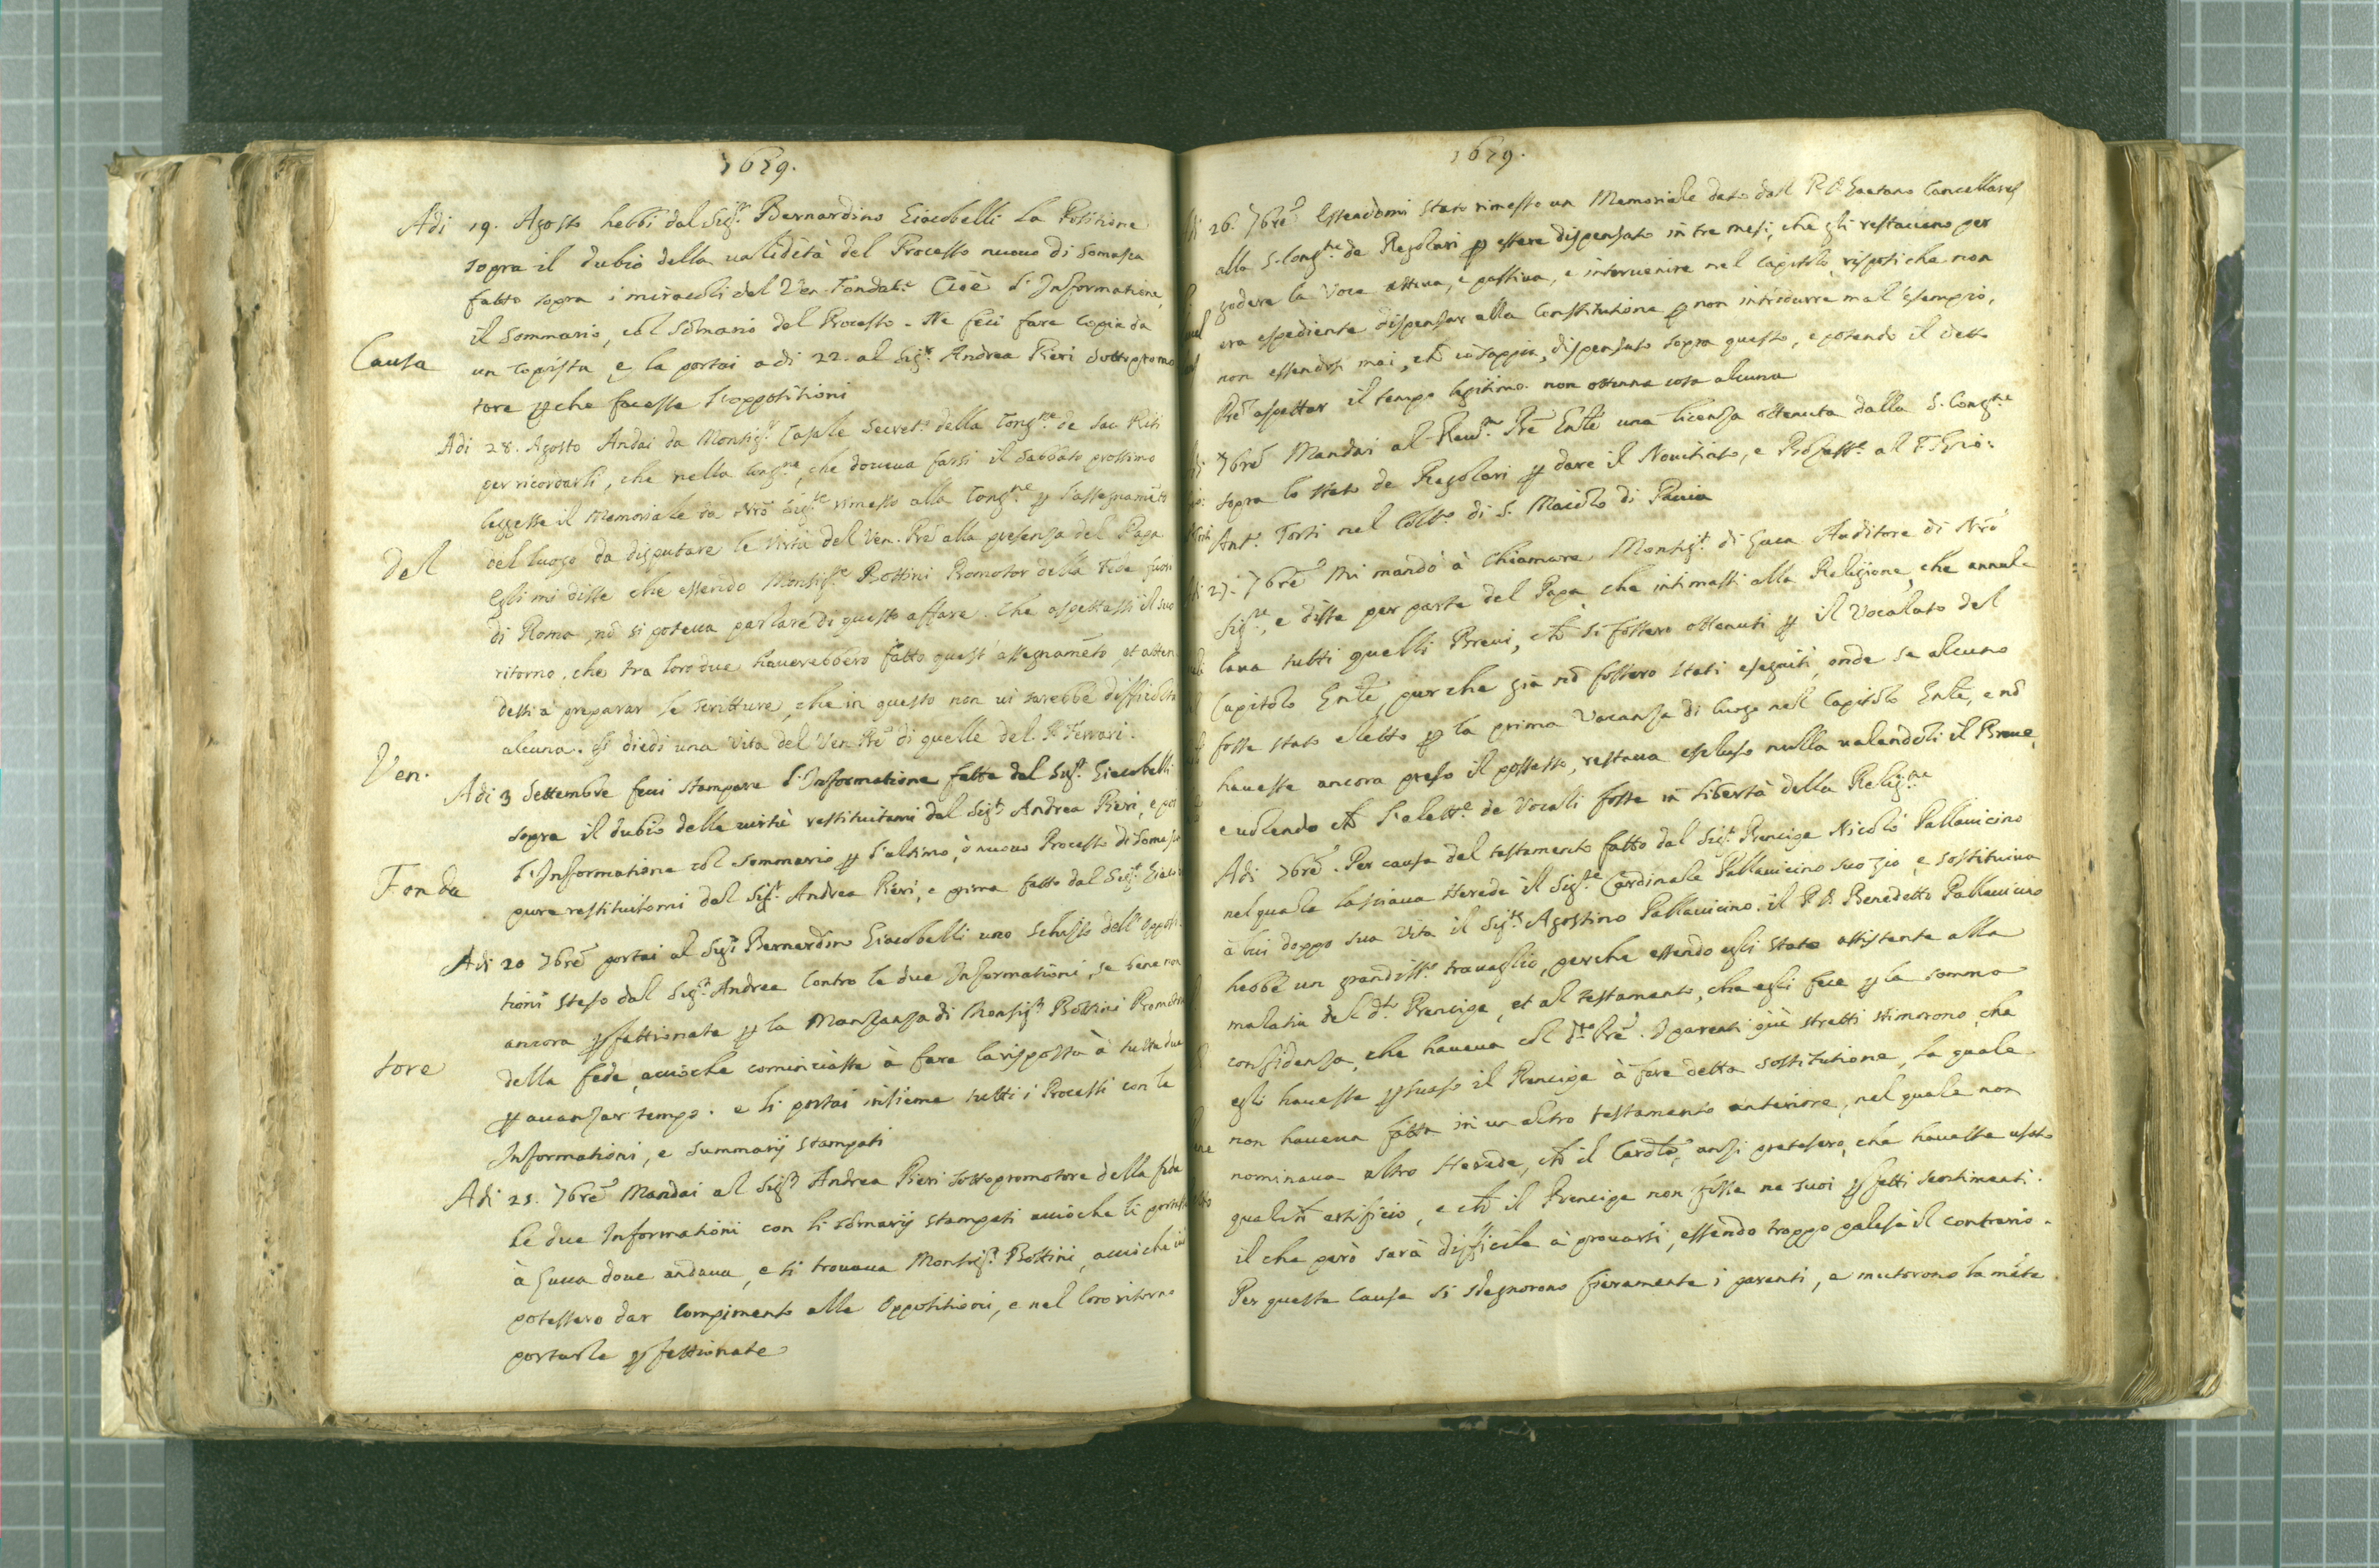 1679.
Adi 19. Agosto hebbi dal Sig.r Bernardino Giacobelli la Positione
sopra il dubio della validità del Processo nuouo di Somasca
fatto sopra i miracoli del Ven. Fondat.e Cioè l'Informatione,
il Sommario, col somario del Processo. Ne feci fare copia da
Causa
un Copista, e la portai adi 22. al Sig.r Andrea Pieri Sottopromo
tore perche facesse l'oppositioni
Adi 28. Agosto Andai da Monsig.r Casale Secret.o della Cong.ne de Sac. Riti
per ricordarli, che nella Cong.ne, che doueua farsi il Sabbato prossimo
leggesse il Memoriale da Nrõ Sig.re rimesso alla Cong.ne per l'assegnamẽto
del luogo da disputare le virtù del Ven. Prẽ alla presenza del Papa
Del
Egli mi disse che essendo Monsig.re Bottini Promotor della Fede fuori
di Roma, nõ si poteua parlare di questo affare. Che aspettassi il suo
ritorno, che tra loro due hauerebbero fatto quest'assegnamẽto, et atten
dessi à preparar le scritture, che in questo non ui sarebbe difficoltà
alcuna. Gli diedi una Vita del Ven. Prẽ di quelle del P. Ferrari.
Ven.
Adi 3 Settembre feci stampare l'Informatione fatta dal Sig.r Giacobelli
sopra il dubio delle uirtù restituitami dal Sig.r Andrea Pieri, e poi
l'Informatione col sommario per l'ultimo, ò nuouo Processo di Somasca
Fonda
pure restituitomi dal Sig.r Andrea Pieri, e prima fatto dal Sig.r Giaco
Adi 20 7brẽ portai al Sig.r Bernardino Giacobelli uno schizzo dell'opposi
tioni steso dal Sig.r Andrea contro le due Informationi, se bene non
ancora perfettionate per la Manzanza di Monsig.r Bottini Promotor
tore
della fede, acciòche cominciasse à fare la risposta à tutte due
per auanzar tempo. e li portai insieme tutti i Processi con le
Informationi, e summarij stampati
Adi 25. 7brẽ Mandai al Sig.r Andrea Pieri Sottopromotore della fede
le due Informationi con li somarij stampati acciòche li portasse
à Luca doue andaua, e si trouaua Monsig.r Bottini, acciòche iui
potessero dar compimento alle Oppositioni, e nel loro ritorno
portarle perfettionate
1679.
26. 7brẽ Essendomi stato rimesso un Memoriale dato dal P. D. Gaetano Cancellares
alla S. Cong.ne de Regolari per essere dispensato in tre mesi, che gli restauano per
godere la Voce attiua, e passiua, e interuenire nel Capitolo, risposi che non
era espediente dispensar alla Constitutione per non introdurre mal'esempio,
non essendosi mai, chẽ io sappia, dispensato sopra questo, e potendo il detto
Prẽ aspettar il tempo legitimo. non ottenne cosa alcuna
7brẽ Mandai al Reu.mo Prẽ Gnlẽ una licenza ottenuta dalla S. Cong.ne
sopra lo stato de Regolari per dare il Nouitiato, e Profess.e al F. Gio:
Ant.o Torti nel Coll.o di S. Maiolo di Pauia
27. 7brẽ Mi mandò à chiamare Monsig.r di Luca Auditore di Nrõ
Sig.re, e disse per parte del Papa, che intimassi alla Religione, che annul-
laua tutti quelli Breui, chẽ si fossero ottenuti per il Vocalato del
Capitolo Gnlẽ, purche già nõ fossero stati eseguiti, onde se alcuno
fosse stato eletto per la prima Vacanza di luogo nel Capitolo Gnlẽ, e nõ
hauesse ancora preso il possesso, restaua escluso nulla ualendoli il Breue,
e uolendo chẽ l'elett.e de Vocali fosse in libertà della Relig.ne
Adi 7brẽ. Per causa del testamento fatto dal Sig.r Prencipe Nicolò Pallauicino
nel quale lasciaua Herede il Sig.re Cardinale Pallauicino suo zio, e sostituiua
à lui doppo sua Vita il Sig.r Agostino Pallauicino. il P. D. Benedetto Pallauicino
hebbe un grandiss.o trauaglio, perche essendo egli stato assistente alla
malatia del d.o Prencipe, et al testamento, che egli fece per la somma
confidenza, che haueua col d.to Prẽ. I parenti più stretti stimorono, che
egli hauesse persuaso il Prencipe à fare detta sostitutione, la quale
non haueua fatta in un altro testamento anteriore, nel quale non
nominaua altro Herede, chẽ il Cardlẽ, anzi pretesero, che hauesse usato
qualchẽ artificio, e chẽ il Prencipe non fosse ne suoi perfetti sentimenti.
il che però sarà difficile à prouarsi, essendo troppo palese il contrario.
Per questa causa si sdegnorono fieramente i parenti, e mutorono la mẽte